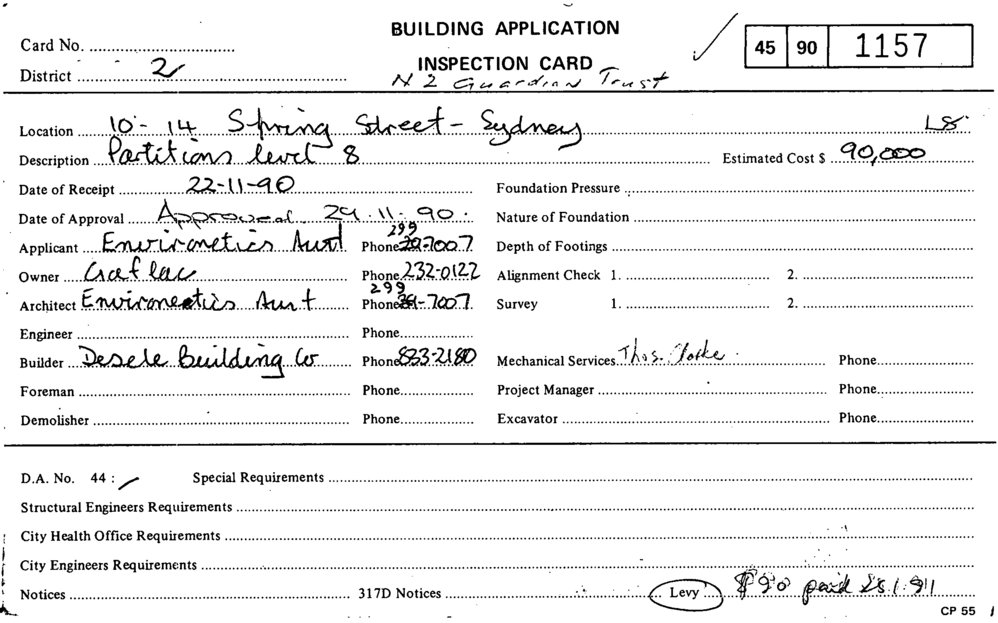 BUILDING APPLICATION
Card No.
45 90 1157
INSPECTION CARD
District 2
NZ Guardian Trust
Location 10-14 Spring Street - Sydney L8
Description Partitions level 8 Estimated Cost $ 90,000
Date of Receipt 22-11-90 Foundation Pressure
Date of Approval Approved 29.11.90. Nature of Foundation
299
Applicant Environetics Aust Phone 7007 Depth of Footings
Owner Phone 232-0122 Alignment Check 1. 2.
299
Architect Environetics Aust Phone -7007 Survey 1. 2.
Engineer Phone
Builder Desele Building Co Phone 883-2180 Mechanical Services Thos. Clarke Phone
Foreman Phone Project Manager Phone
Demolisher Phone Excavator Phone
D.A. No. 44 : Special Requirements
Structural Engineers Requirements
City Health Office Requirements
City Engineers Requirements
Notices 317D Notices Levy $90 paid
CP 55